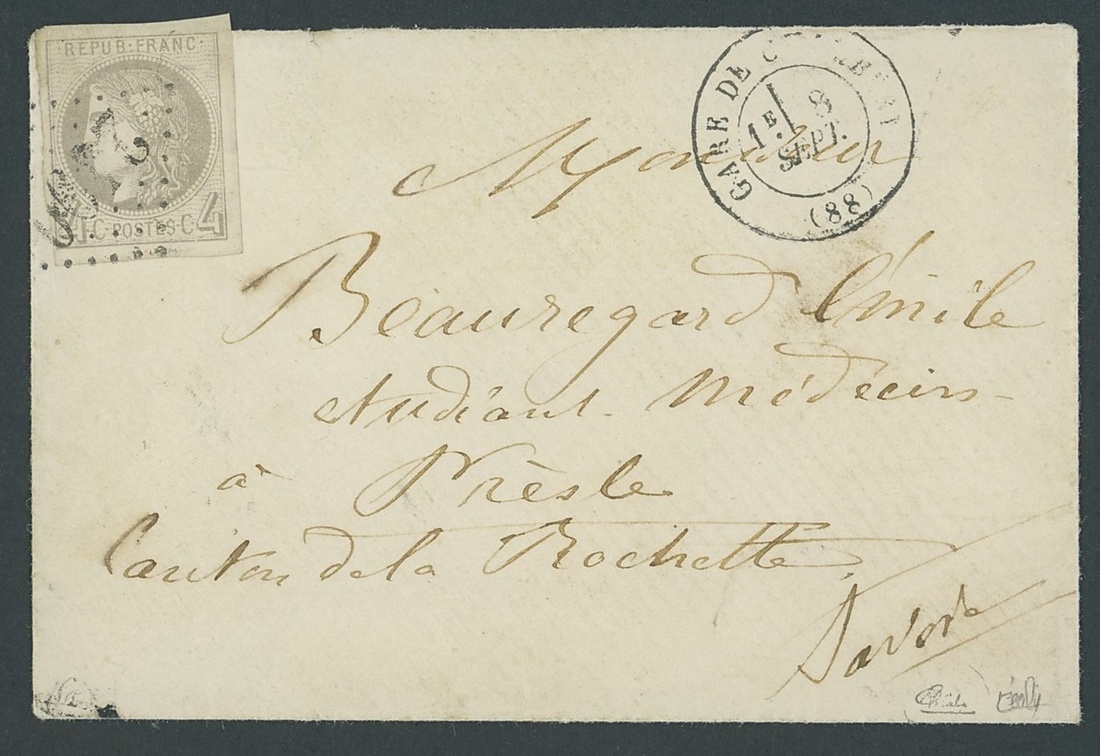 REPUB·FRANC·
4 C·POSTES·C 4
GARE DE
1E 8
SEPT.
(88)
Monsieur
Beauregard Émile
etudiant Médecin
à Prèsle
Canton de la Rochette
Savoie